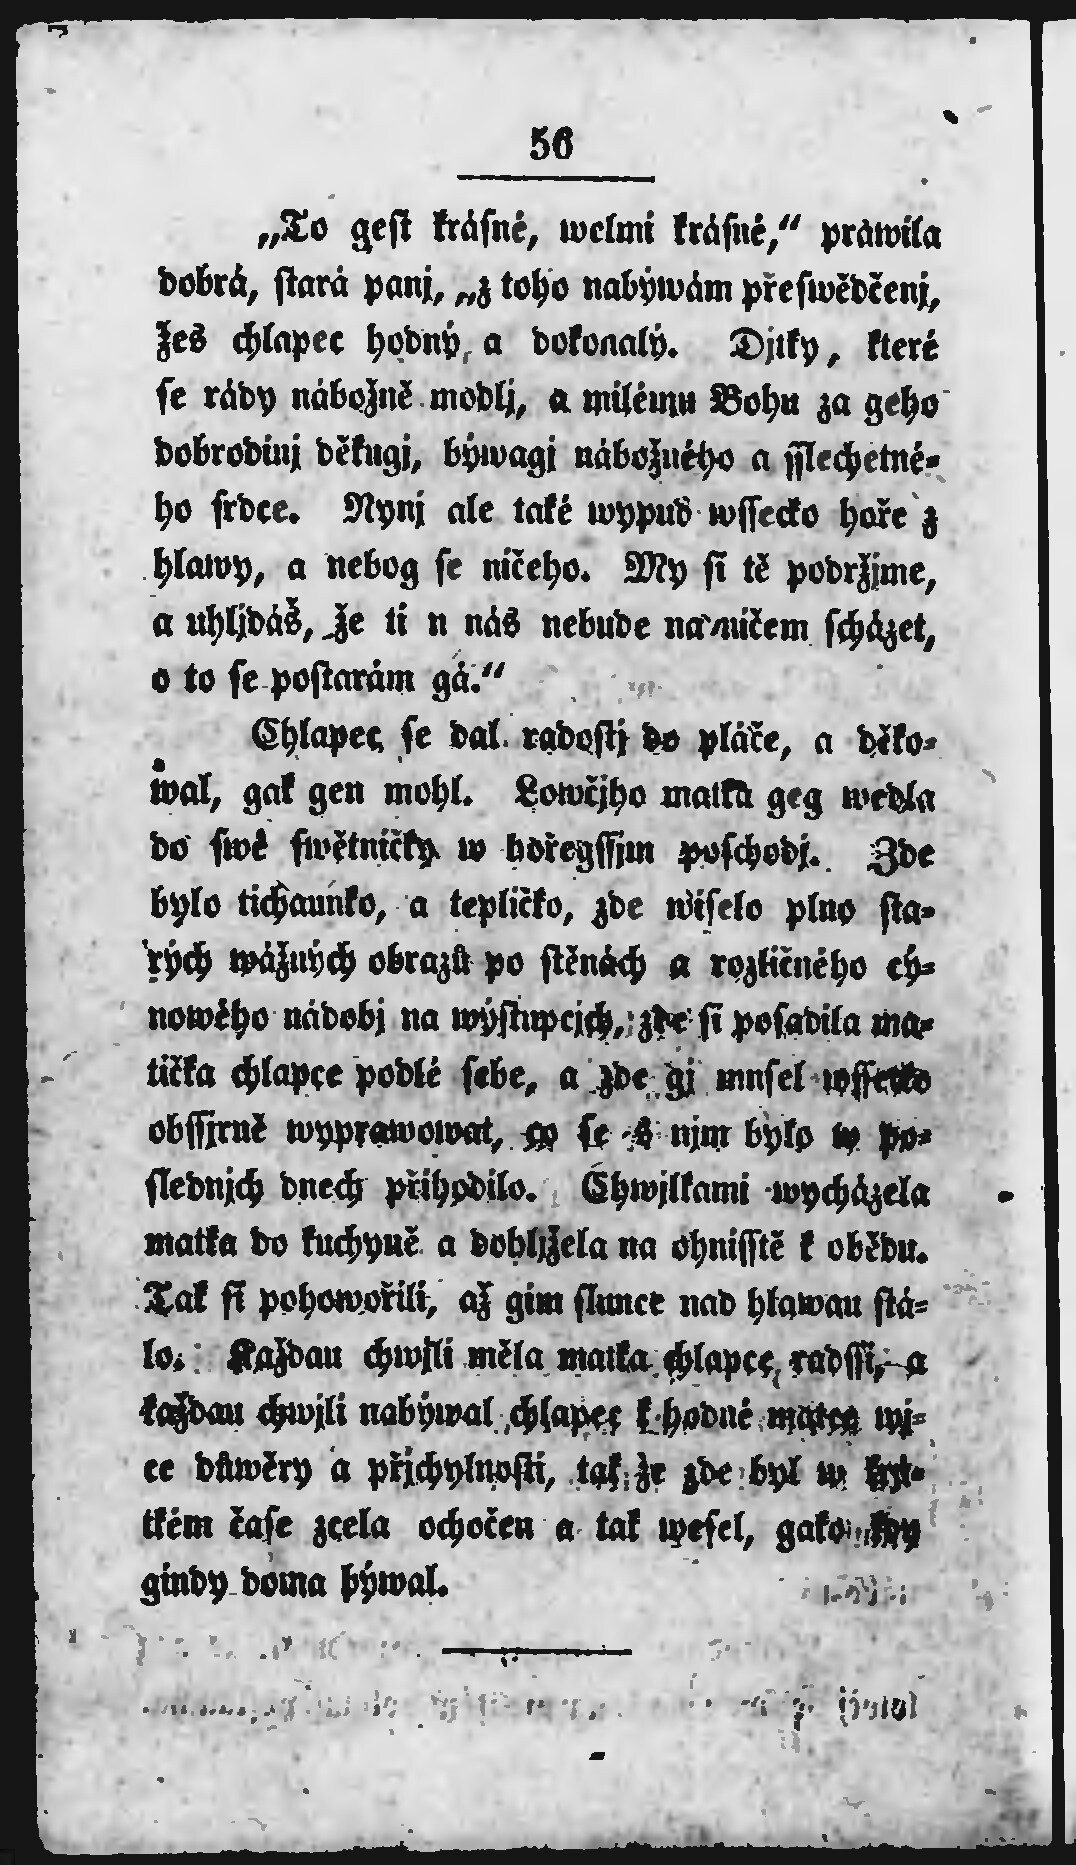 56
„To gest krásné, welmi krásné,“ prawila
dobrá, stará panj, „z toho nabýwám přeswědčenj,
žes chlapec hodný a dokonalý. Djtky, které
se rády nábožně modlj, a milému Bohu za geho
dobrodinj děkugj, býwagj nábožného a sslechetné-
ho srdce. Nynj ale také wypuď wssecko hoře z
hlawy, a nebog se ničeho. My si tě podržjme,
a uhljdáš, že ti u nás nebude na ničem scházet,
o to se postarám gá.“
Chlapec se dal radostj do pláče, a děko-
wal, gak gen mohl. Lowčjho matka geg wedla
do swé swětničky w hořegssjm poschodj. Zde
bylo tichaunko, a tepličko, zde wiselo plno sta-
rých wážných obrazů po stěnách a rozličného cý-
nowého nádobj na wýstupcjch, zde si posadila ma-
tička chlapce podlé sebe, a zde gj musel wssecko
obssjrně wyprawowat, co se s njm bylo w po-
slednjch dnech přihodilo. Chwjlkami wycházela
matka do kuchyně a dohljžela na ohnisstě k obědu.
Tak si pohowořili, až gim slunce nad hlawau stá-
lo. Každau chwjli měla matka chlapce radssi, a
každau chwjli nabýwal chlapec k hodné matce wj-
ce důwěry a přjchylnosti, tak že zde byl w krá-
tkém čase zcela ochočen a tak wesel, gako kdy
gindy doma býwal.